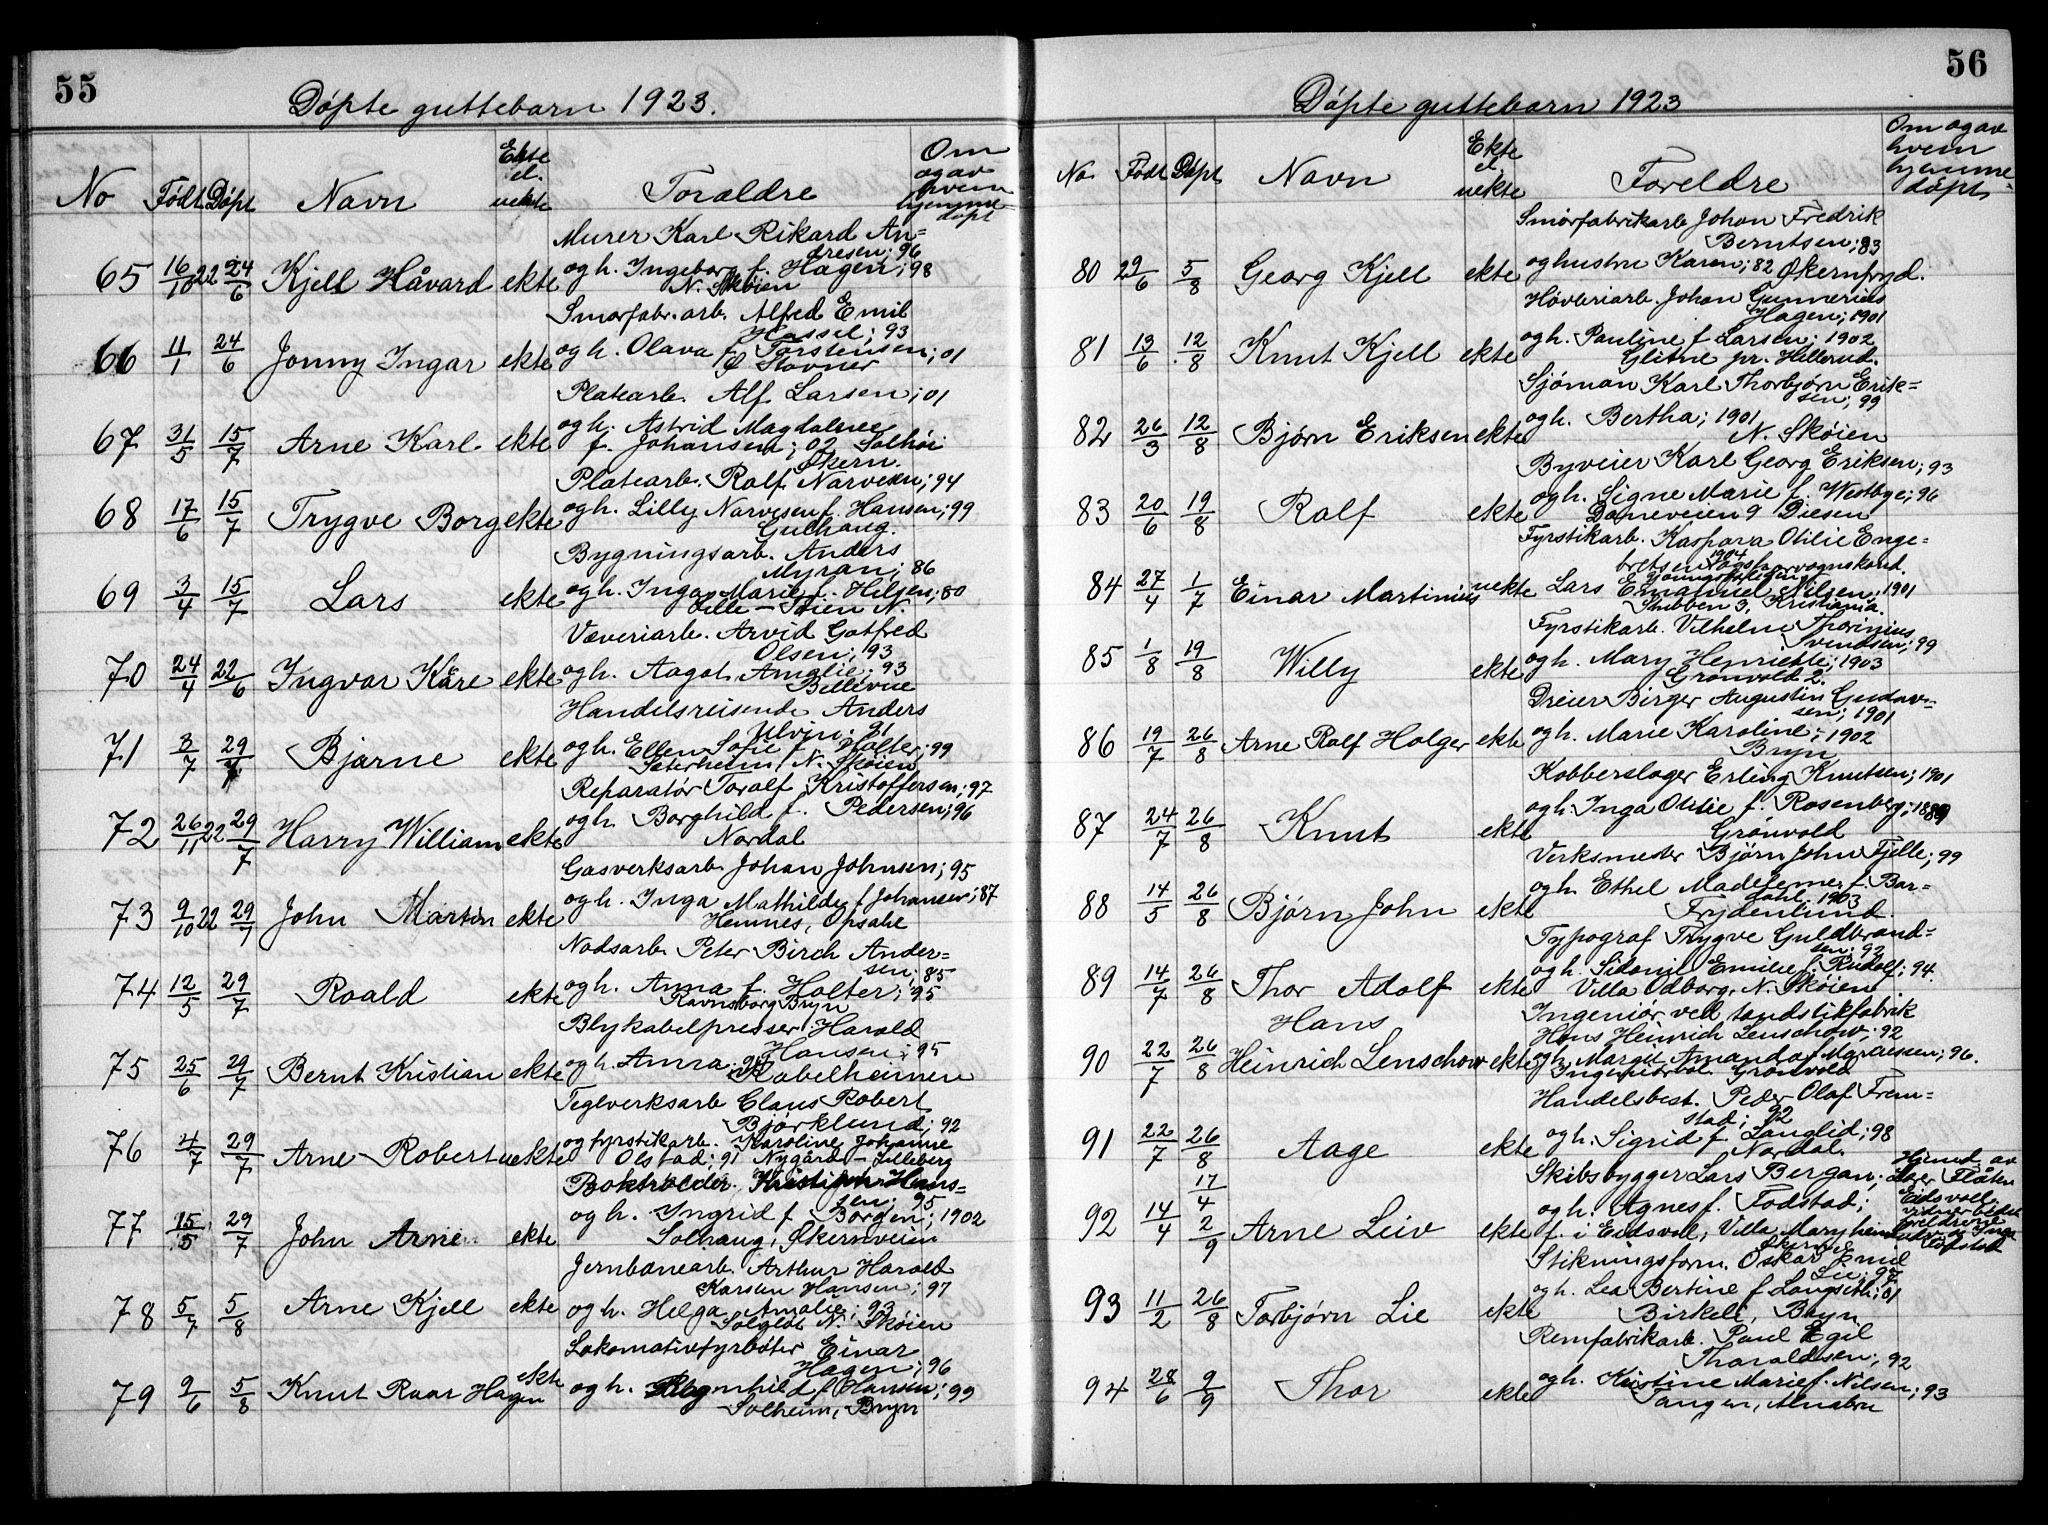 55
Døpte guttebarn 1923.
No Født Døpt Navn Ekte el. uekte Foraldre Om og av hvem hjemme-døpt
Murer Karl Rikard An=
dresen; 96
65 16/10 22 24/6 Kjell Håvard ekte og h. Ingeborg f. Hagen; 98
N. Skøien
Smørfabr. arb. Alfred Emil
Hassel; 93
66 11/1 24/6 Jonny Ingar ekte og h. Olava f. Torstensen; 01
Ø Stovner
Platearb. Alf Larsen; 01
67 31/5 15/7 Arne Karl ekte og h. Astrid Magdalene
f. Johansen; 02 Solhøi
Økern.
Platearb. Rolf Narvesen; 94
68 17/6 15/7 Trygve Borg ekte og h. Lilly Narvesen f. Hansen; 99
Gulhaug.
Bygningsarb. Anders
Myran; 86
69 3/4 15/7 Lars ekte og h. Inga Marie f. Hilsen; 80
Lille-Stien N.
Væveriarb. Arvid Gotfred
Olsen; 93
70 24/4 22/6 Ingvar Kåre ekte og h. Aagot Amalie; 93
Bellevue
Handelsreisende Anders
Ulvin; 91
71 3/7 29/7 Bjarne ekte og h. Ellen Sofie f. Holter; 99
Sæterheim N. Skøien
Reparatør Toralf Kristoffersen; 97
72 26/11 22 29/7 Harry William ekte og h. Borghild f. Pedersen; 96
Nordal
Gasverksarb Johan Johnsen; 95
73 9/10 22 29/7 John Martin ekte og h. Inga Mathilde f Johansen; 87
Hemnes, Opsahl
Nodsarb. Peter Birch Ander=
sen; 85
74 12/5 29/7 Roald ekte og h. Anna f. Holter; 95
Ravnsborg Bryn
Blykabelpresser Harald
Hansen; 95
75 25/6 29/7 Bernt Kristian ekte og h. Anna; 94
Kabelheimen
Teglverksarb Claus Robert
Bjørklund; 92
76 4/7 29/7 Arne Robert uekte og fyrstikarb. Karoline Johanne
Olstad; 91 Nygård - Lilleberg
Bokholder. Kristian Hans=
sen; 95
77 15/5 29/7 John Arne ekte og h. Ingrid f Borgen; 1902
Solhaug, Økernveien
Jernbanearb. Arthur Harald
Karsten Hansen; 97
78 5/7 5/8 Arne Kjell ekte og h. Helga Amalie; 93
Solgløt N. Skøien
Lokomotivfyrbøter Einar
Hagen; 96
79 9/6 5/8 Knut Roar Hagen ekte og h. Ragnhild f Hansen; 99
Solheim, Bryn
56
Døpte guttebarn 1923
No Født Døpt Navn Ekte el. uekte Foreldre Om og av hvem hjemme-døpt
Smørfabrikarb Johan Fredrik
Berntsen; 83
80 29/6 5/8 Georg Kjell ekte og hustru Karen; 82 Økernfryd.
Høvleriarb. Johan Gunnerius
Hagen; 1901
81 13/6 12/8 Knut Kjell ekte og h. Pauline f Larsen; 1902
Glitne pr. Hillerud.
Sjøman Karl Thorbjørn Erik=
sen; 99
82 26/3 12/8 Bjørn Eriksen ekte og h. Bertha; 1901
N. Skøien
Byveier Karl Georg Eriksen; 93
83 20/6 19/8 Rolf ekte og h. Signe Marie f. Westbye; 96
Doneveien 9 Diesen
Fyrstikarb. Kaspara Otilie Enge=
bretsen 1904
84 27/4 1/7 Einar Martinius uekte Lars Emanuel Nilsen, 1901
Stubben 3, Kristiania.
Fyrstikarb. Vilhelm Thorinius
Svendsen; 99
85 1/8 19/8 Willy ekte og h. Mary Henriette; 1903
Grønvold 2.
Dreier Birger Augustin Gustav=
sen; 1901
86 19/7 26/8 Arne Rolf Holger ekte og h. Marie Karoline; 1902
Bryn
Kobberslager Erling Knutsen; 1901
87 24/7 26/8 Knut ekte og h. Inga Otilie f. Rosenberg; 1889
Grønvold
Verksmester Bjørn John Fjelle; 99
88 14/5 26/8 Bjørn John ekte og h. Ethel Madeleine f. Bar=
dahl. 1903
Frydenlund.
Typograf Trygve Guldbrand=
sen; 92
89 14/7 26/8 Thor Adolf ekte og h. Sidonie Emilie f. Rudolf; 94.
Villa Odborg, N. Skøien
Ingeniør ved tændstikfabrik
Hans Heinrich Lenschow; 92
90 22/7 26/8 Hans Heinrich Lenschow ekte og h. Margit Amanda f. Martessen; 96.
Ingeniørbol. Grønvold
Handelsbest. Peder Olaf Frem=
stad; 92
91 22/7 26/8 Aage ekte og h. Sigrid f Langlid; 98
Nordal.
Skibsbygger Lars Bergan;
92 14/4 17/4 2/9 Arne Leiv ekte og h. Agnes f. Fodstad;
f. i Eidsvol, Villa Maryheim
Økern
Hjemd. av Lærer Flåten Eidsvoll. vidner foreldrene
Stikningsform. Oskar Emil
Lie; 97
93 11/2 26/8 Torbjørn Lie ekte og h. Lea Bertine f Langseth; 01
Birkeli, Bryn
Remfabrikarb. Paul Egil
Tharaldsen; 92
94 28/6 9/9 Thor ekte og h. Kristine Marie f. Nilsen; 93
Tangen, Alnabru